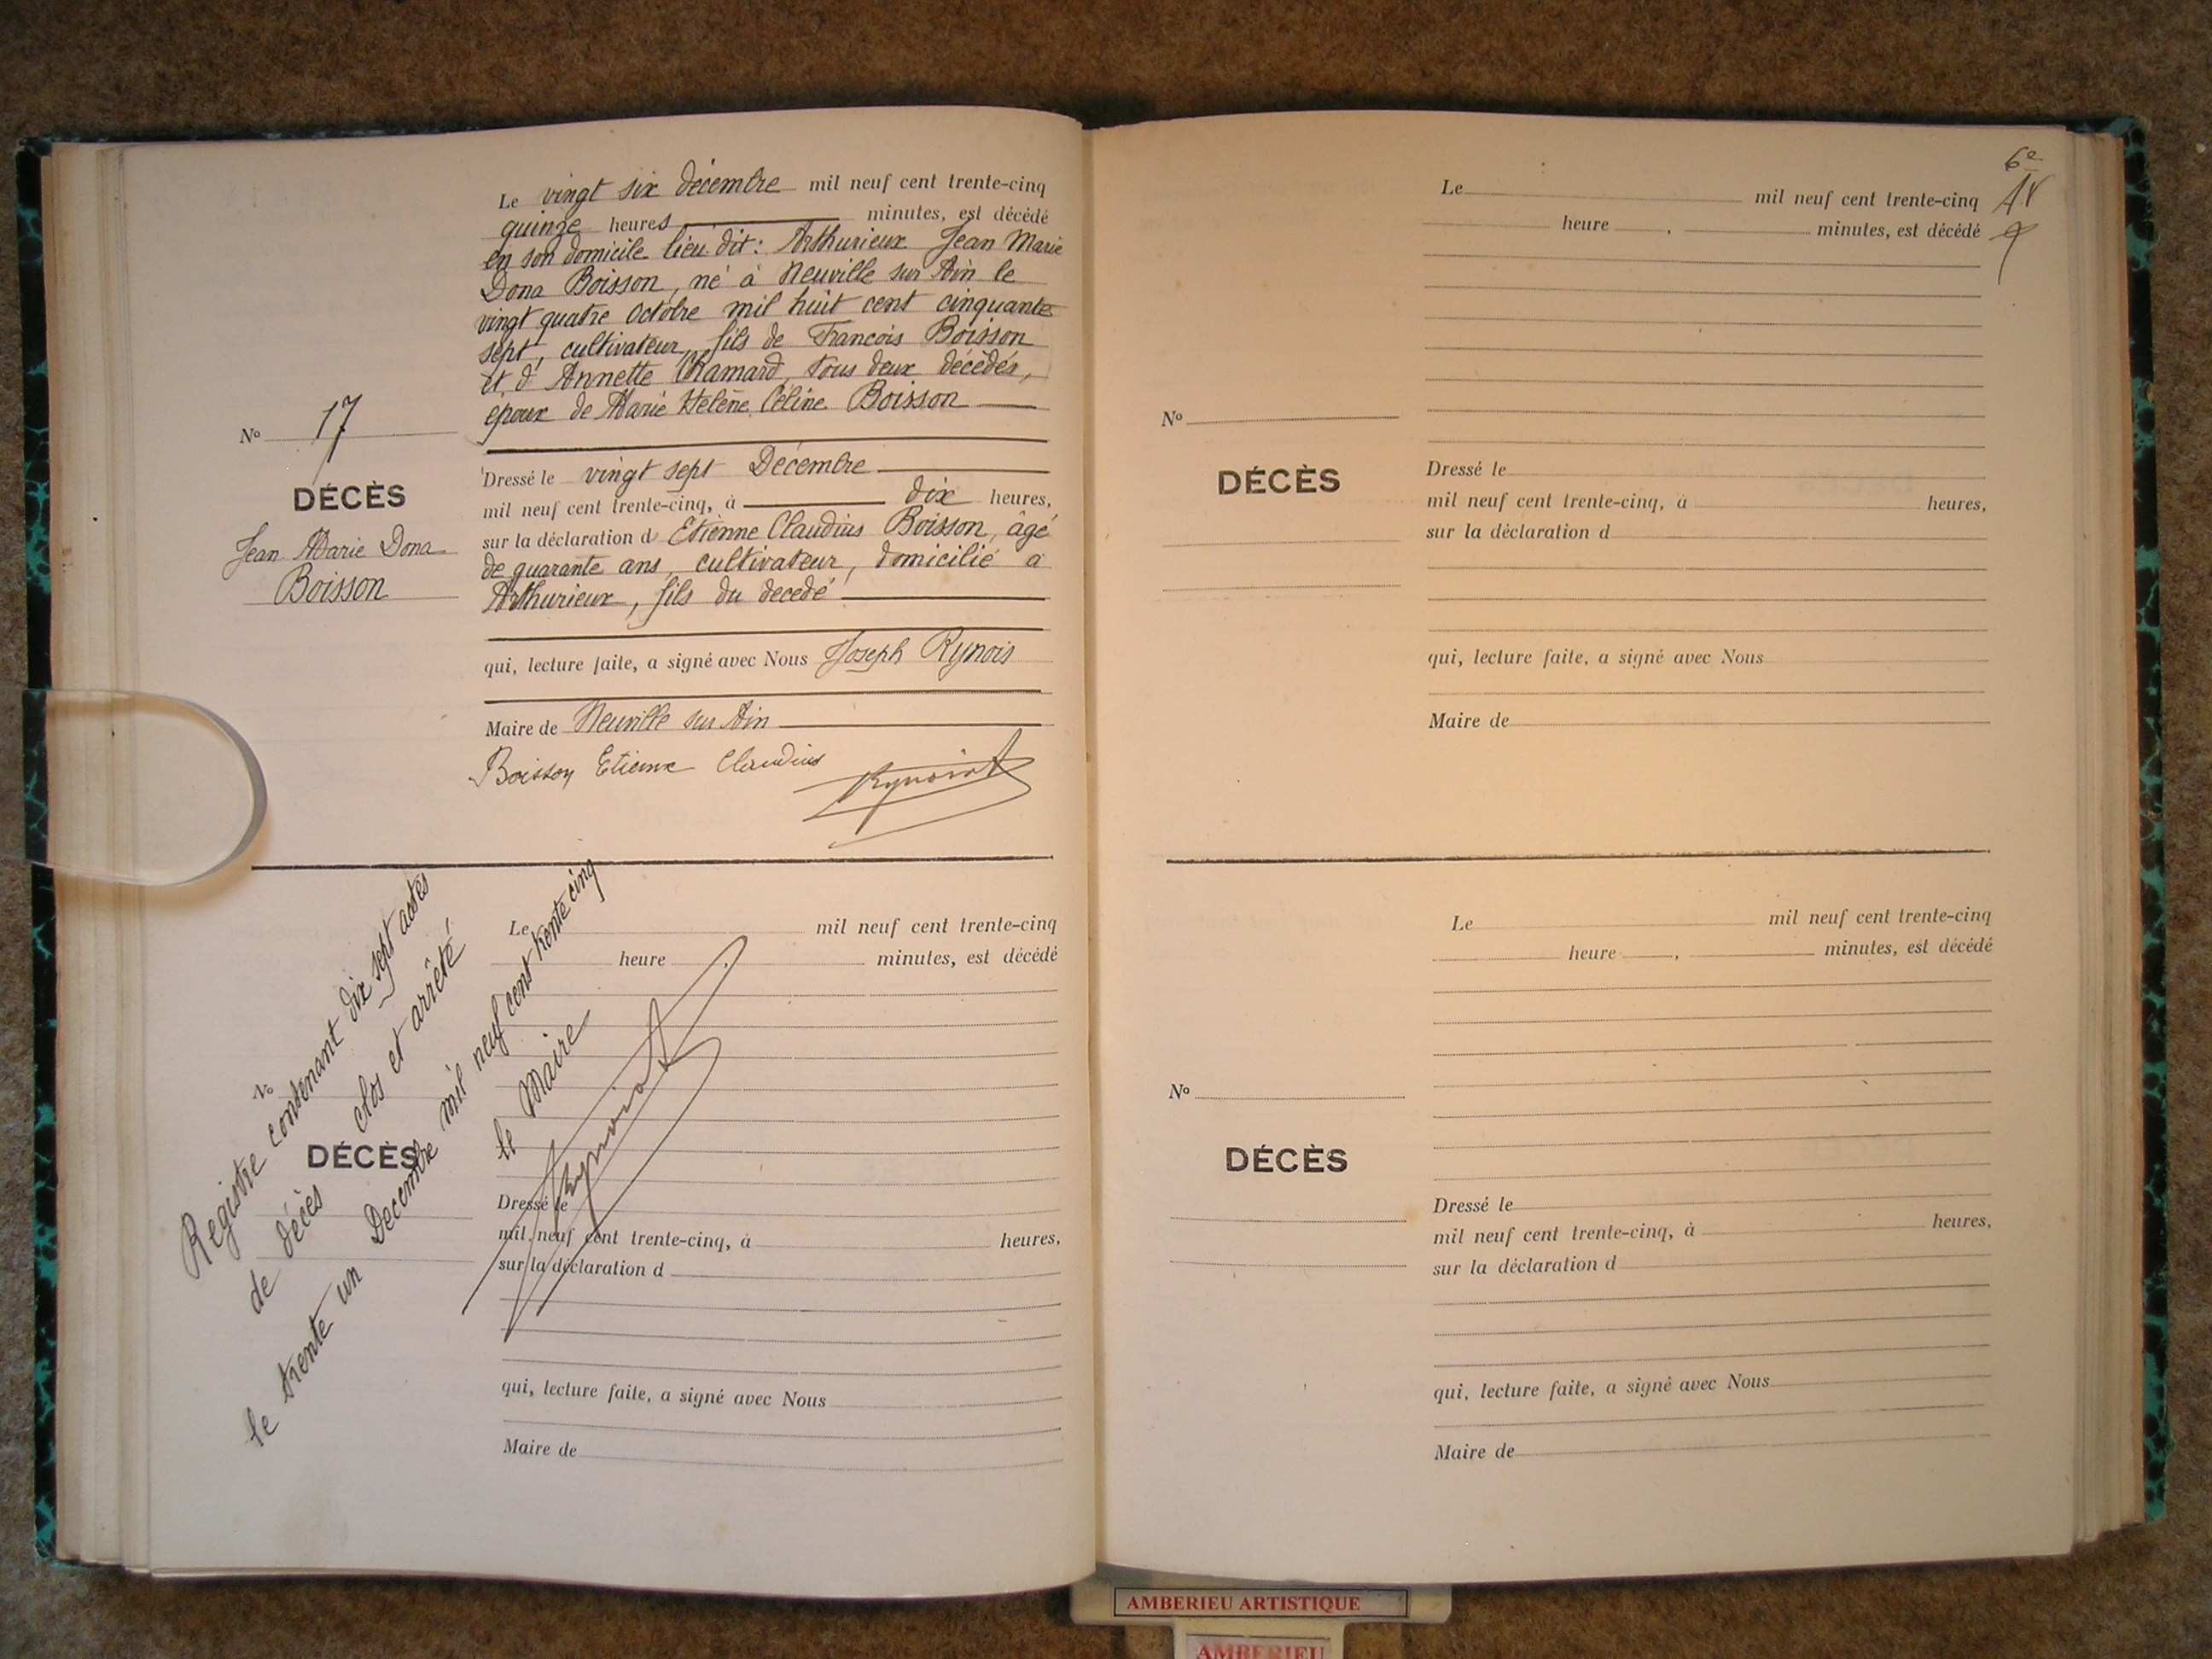 Le vingt six décembre mil neuf cent trente-cinq
quinze heures minutes, est décédé
en son domicile lieu dit : Arthurieux Jean Marie
Dona Boisson, né à Neuville sur Ain le
vingt quatre Octobre mil huit cent cinquante
sept, cultivateur, fils de François Boisson
et d' Annette Ramard, tous deux décédés,
époux de Marie Hélène Céline Boisson
No 17
DÉCÈS
Jean Marie Dona
Boisson
Dressé le vingt sept Décembre
mil neuf cent trente-cinq, à dix heures,
sur la déclaration d' Etienne Claudius Boisson, âgé
de quarante ans, cultivateur, domicilié à
Arthurieux, fils du décédé
qui, lecture faite, a signé avec Nous Joseph Rynois
Maire de Neuville sur Ain
Boisson Etienne Claudius
Registre contenant dix sept actes
de décès clos et arrêté
le trente un Decembre mil neuf cent trente cinq
le Maire
Le mil neuf cent trente-cinq
heure , minutes, est décédé
No
DÉCÈS
Dressé le
mil neuf cent trente-cinq, à heures,
sur la déclaration d
qui, lecture faite, a signé avec Nous
Maire de
6e
Le mil neuf cent trente-cinq
heure , minutes, est décédé
No
DÉCÈS
Dressé le
mil neuf cent trente-cinq, à heures,
sur la déclaration d
qui, lecture faite, a signé avec Nous
Maire de
Le mil neuf cent trente-cinq
heure , minutes, est décédé
No
DÉCÈS
Dressé le
mil neuf cent trente-cinq, à heures,
sur la déclaration d
qui, lecture faite, a signé avec Nous
Maire de
AMBERIEU ARTISTIQUE
AMBERIEU